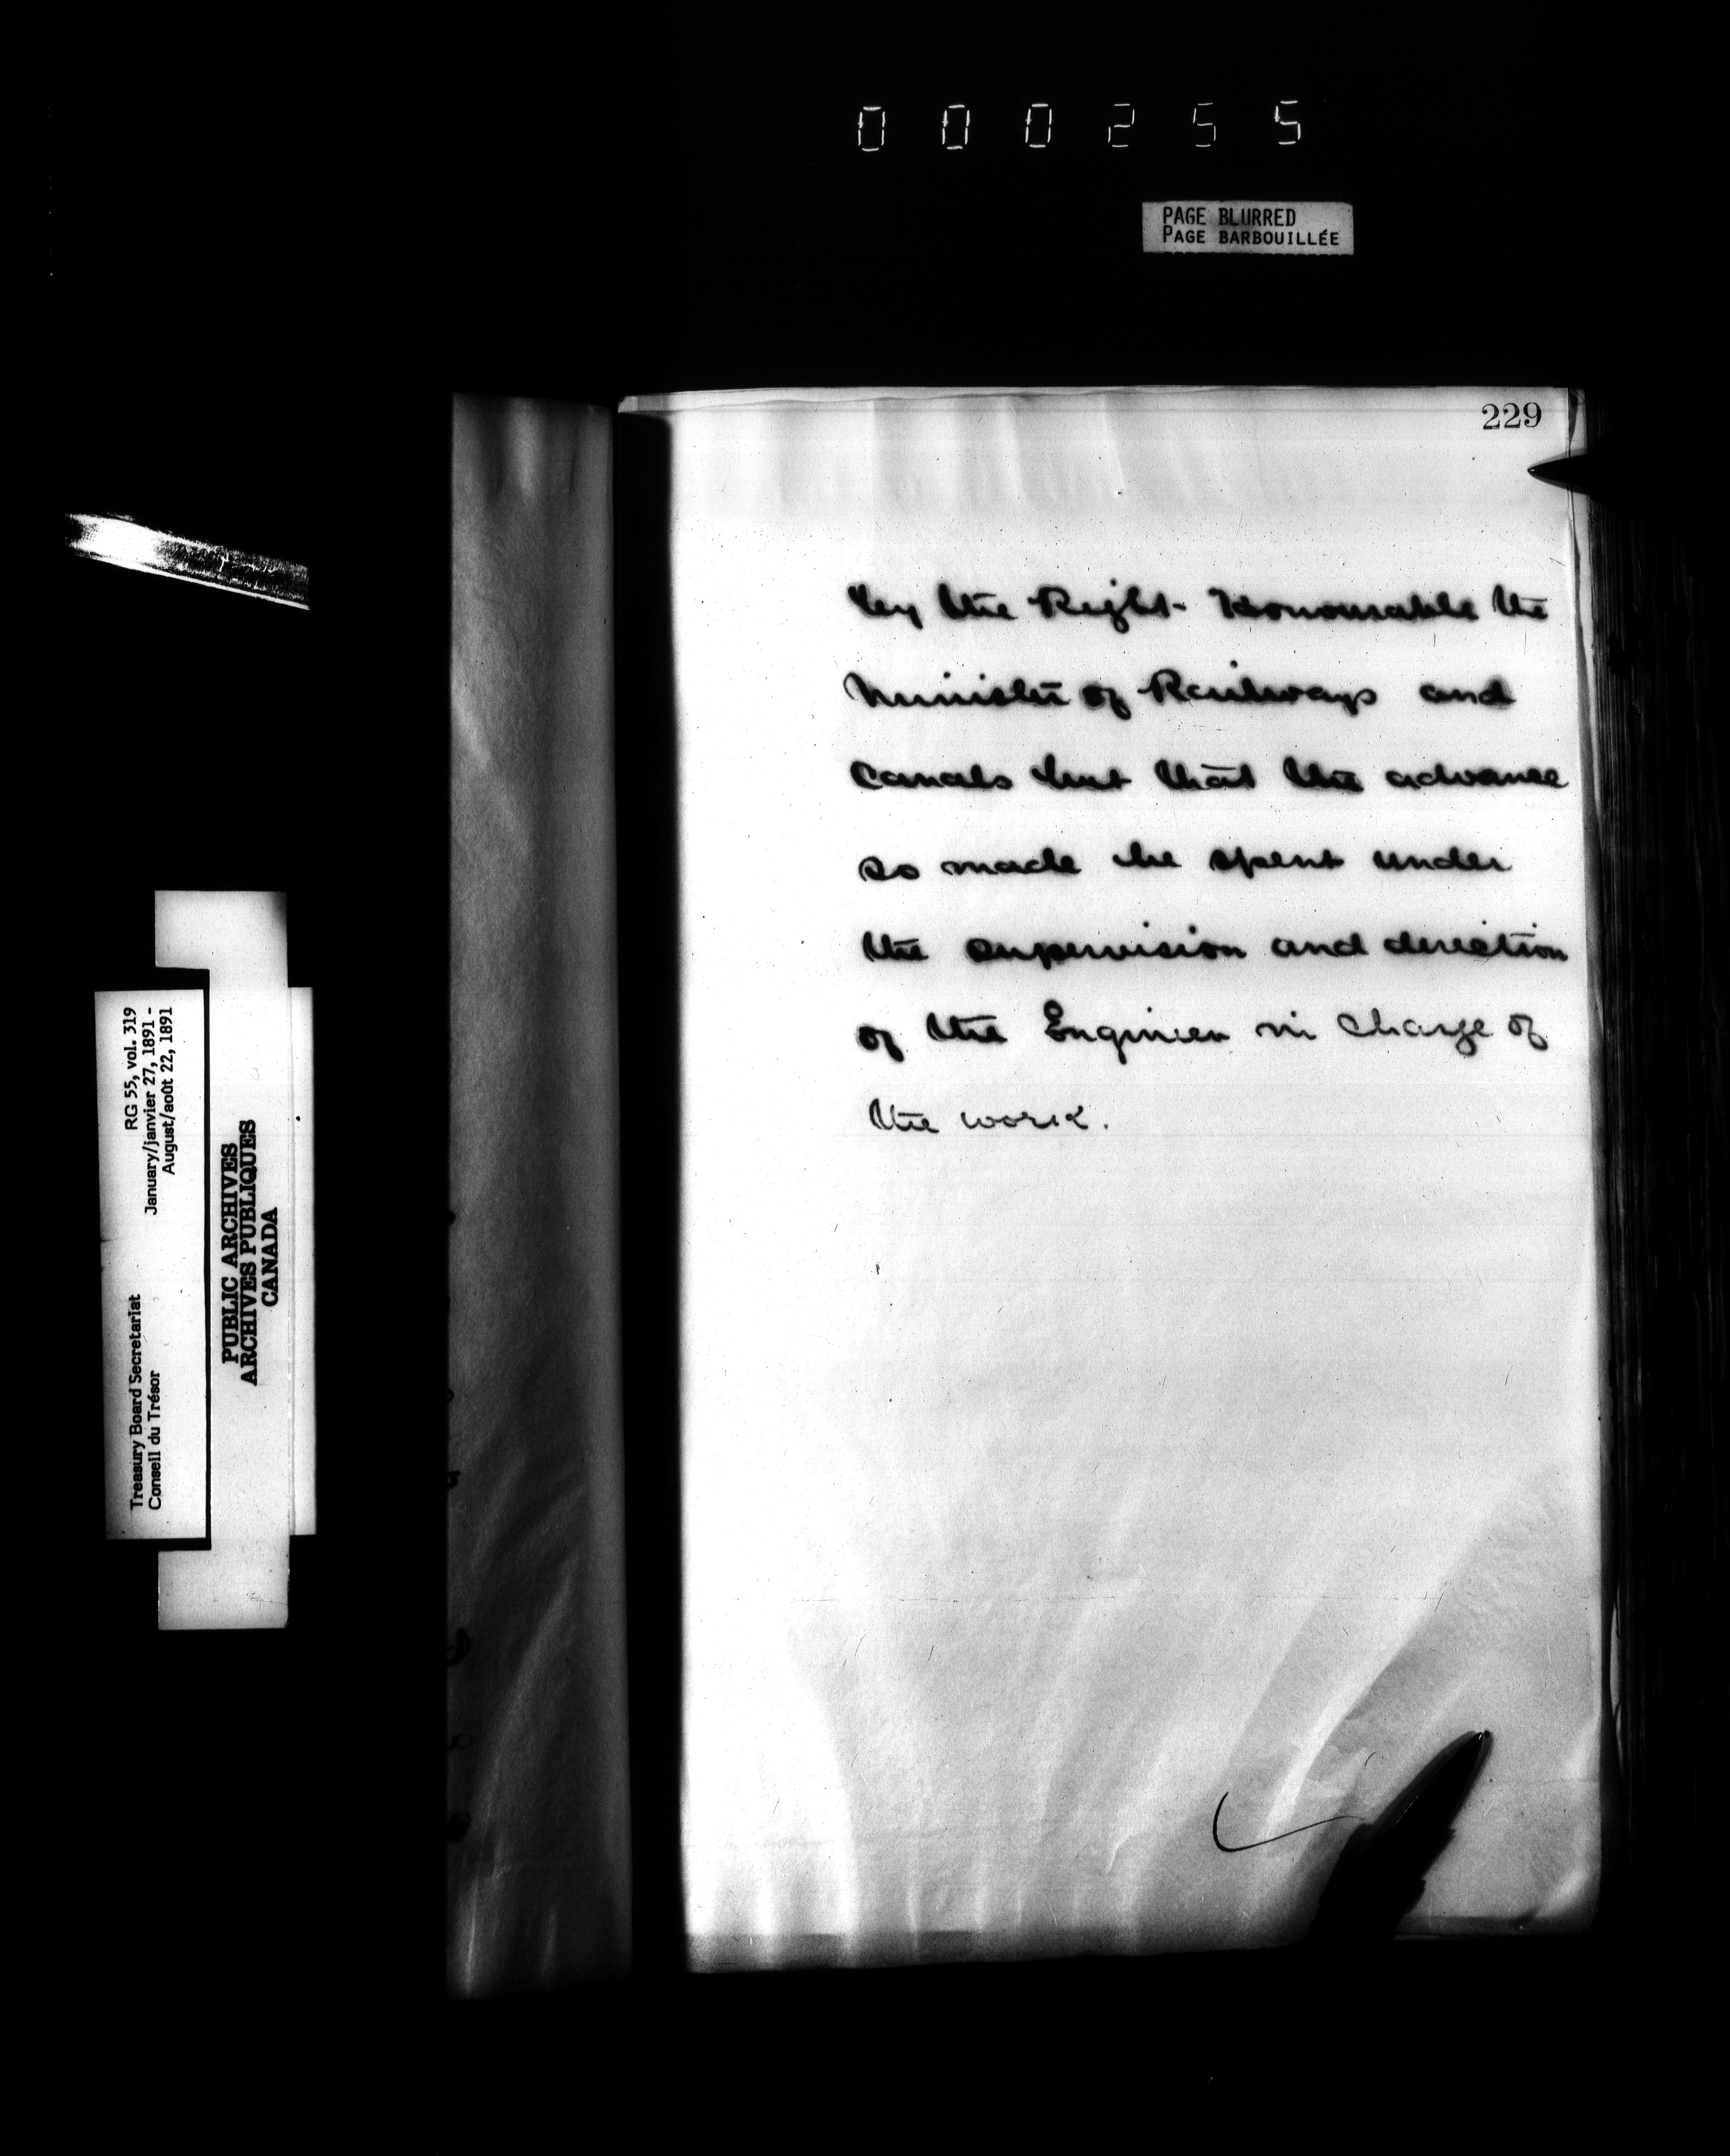 000255
PAGE BLURRED
PAGE BARBOUILLÉE
229
by the Right Honourable the
Minister of Railways and
Canals but that the advance
so made be spent under
the supervision and direction
of the Engineer in charge of
the work.
Treasury Board Secretariat RG 55, vol. 319
Conseil du Trésor January/janvier 27, 1891 -
August/août 22, 1891
PUBLIC ARCHIVES
ARCHIVES PUBLIQUES
CANADA